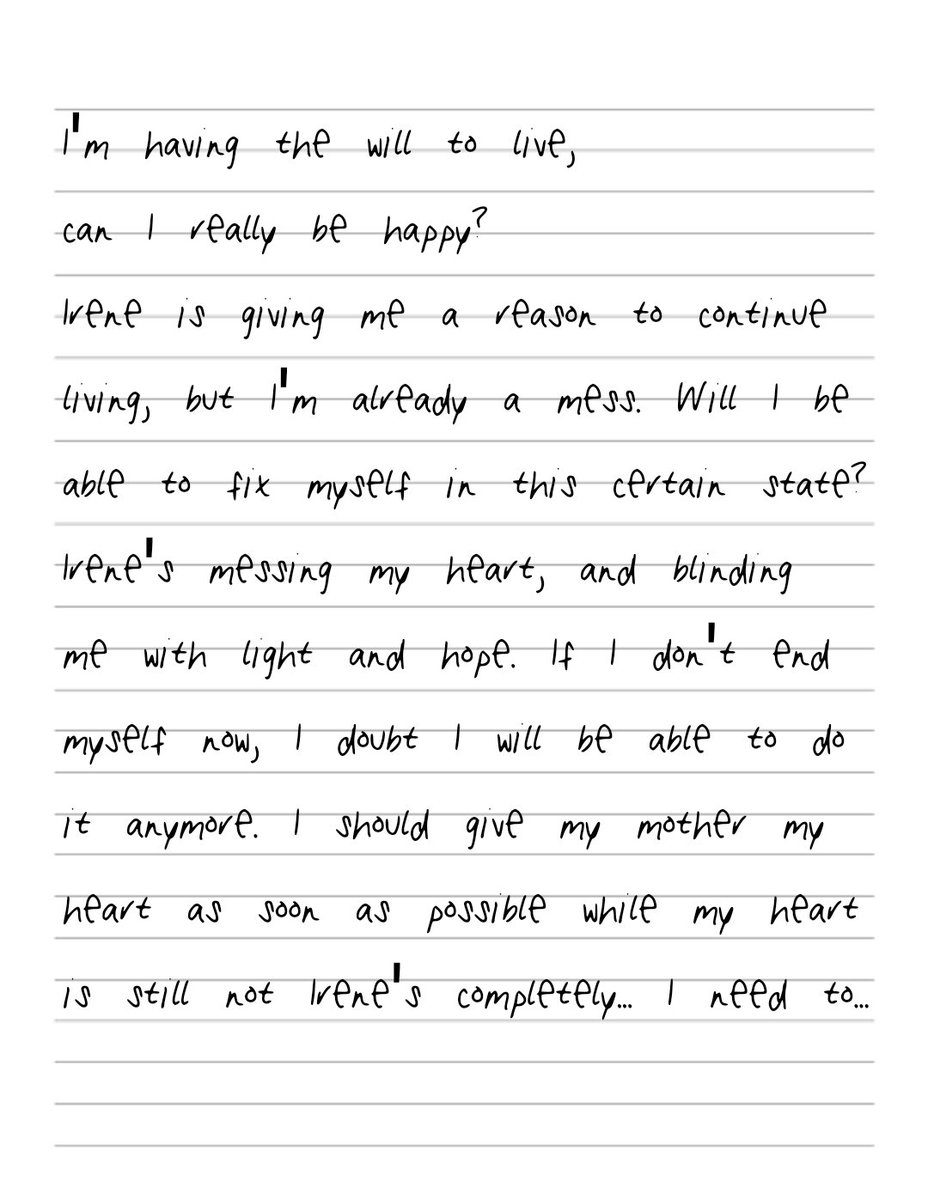 I'm having the will to live,
can I really be happy?
Irene is giving me a reason to continue
living, but I'm already a mess. Will I be
able to fix myself in this certain state?
Irene's messing my heart, and blinding
me with light and hope. If I don't end
myself now, I doubt I will be able to do
it anymore. I should give my mother my
heart as soon as possible while my heart
is still not Irene's completely... I need to...